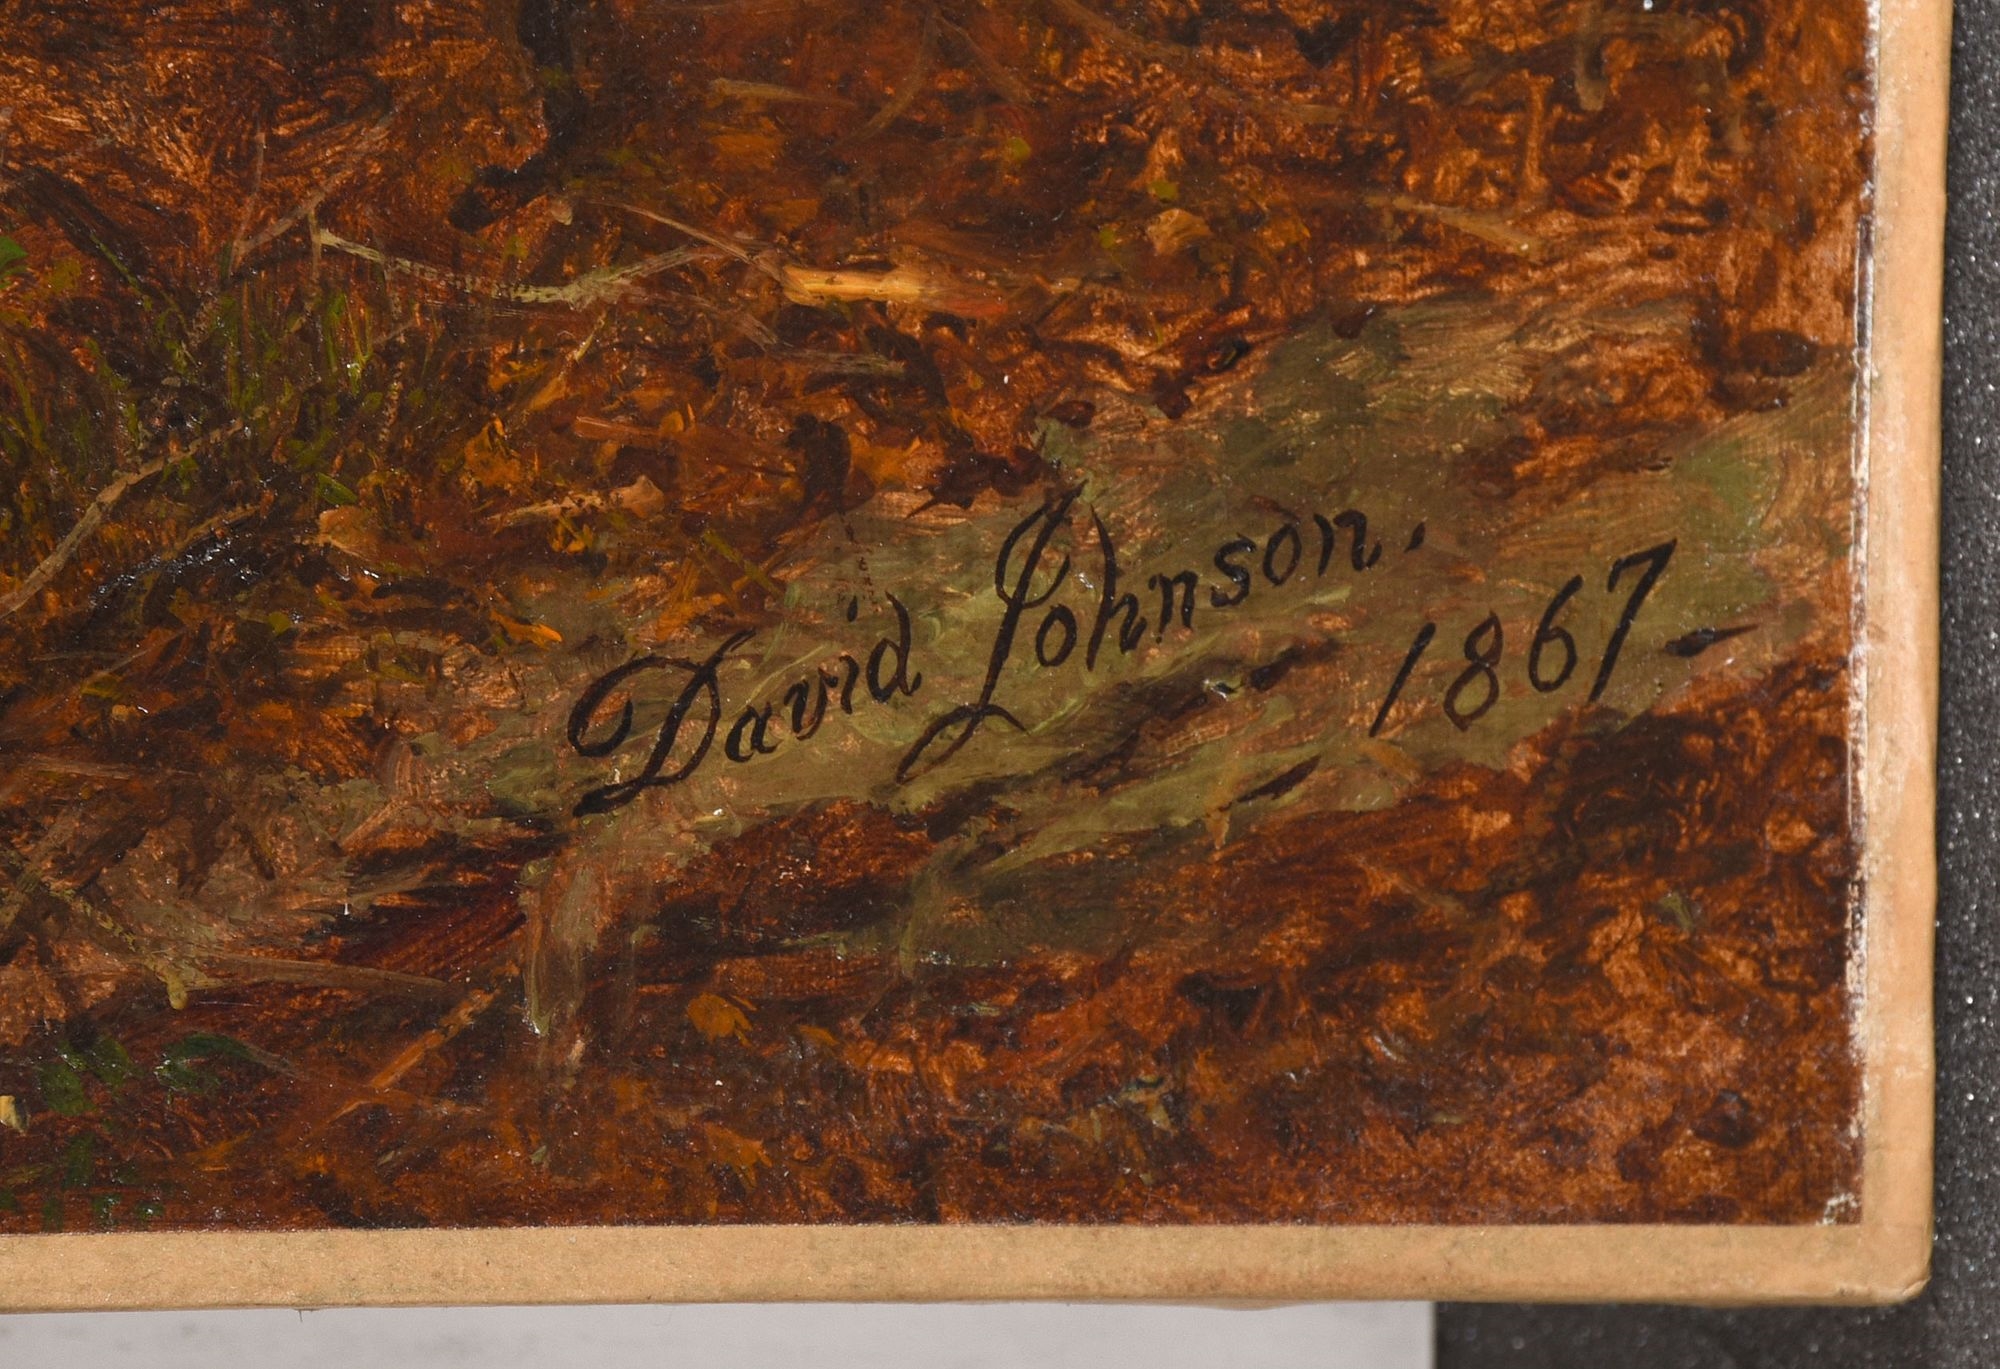 David Johnson. 1867-